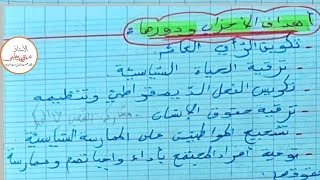 أهداف الأحزاب ودورها:
- تكوين الرأي العام.
- ترقية الحياة السياسية
- تكريس الفعل الديمقراطي وتنظيمه
- ترقية حقوق الإنسان
- تشجيع المواطنين على الممارسة السياسية
- توعية أفراد المجتمع بأداء واجباتهم وممارسة
حقوقهم